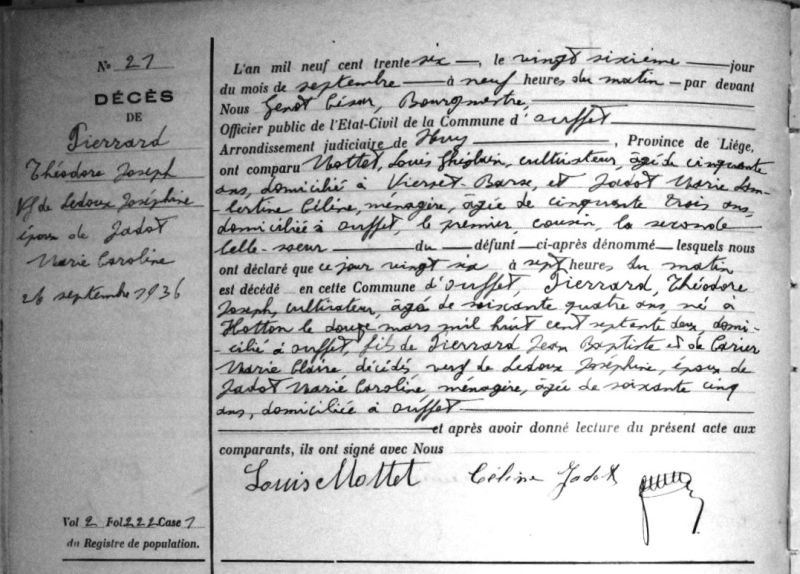 N° 21
DÉCÈS
DE
Pierrard
Théodore Joseph
Vf de Ledoux Joséphine
époux de Jadot
Marie Caroline
26 septembre 1936
Vol 2 Fol 222 Case 1
du Registre de population.
L'an mil neuf cent trente six, le vingt sixième jour
du mois de septembre à neuf heures du matin par devant
Nous Genot César, Bourgmestre,
Officier public de l'Etat-Civil de la Commune d'Ouffet
Arrondissement judiciaire de Huy, Province de Liége,
ont comparu Mottet, Louis Ghislain, cultivateur, âgé de cinquante
ans, domicilié à Vierset-Barse, et Jadot Marie Lam-
bertine Céline, ménagère, âgée de cinquante trois ans,
domiciliée à Ouffet, le premier, cousin, la seconde
belle-soeur du défunt ci-après dénommé lesquels nous
ont déclaré que ce jour vingt six à sept heures du matin
est décédé en cette Commune d'Ouffet, Pierrard, Théodore
Joseph, cultivateur, âgé de soixante quatre ans, né à
Hotton le douze mars mil huit cent septante deux, domi-
-cilié à Ouffet, fils de Pierrard Jean Baptiste et de Carier
Marie Claire décédés veuf de Ledoux Joséphine, époux de
Jadot Marie Caroline ménagère, âgée de soixante cinq
ans, domiciliée à Ouffet
et après avoir donné lecture du présent acte aux
comparants, ils ont signé avec Nous
Louis Mottet Céline Jadot